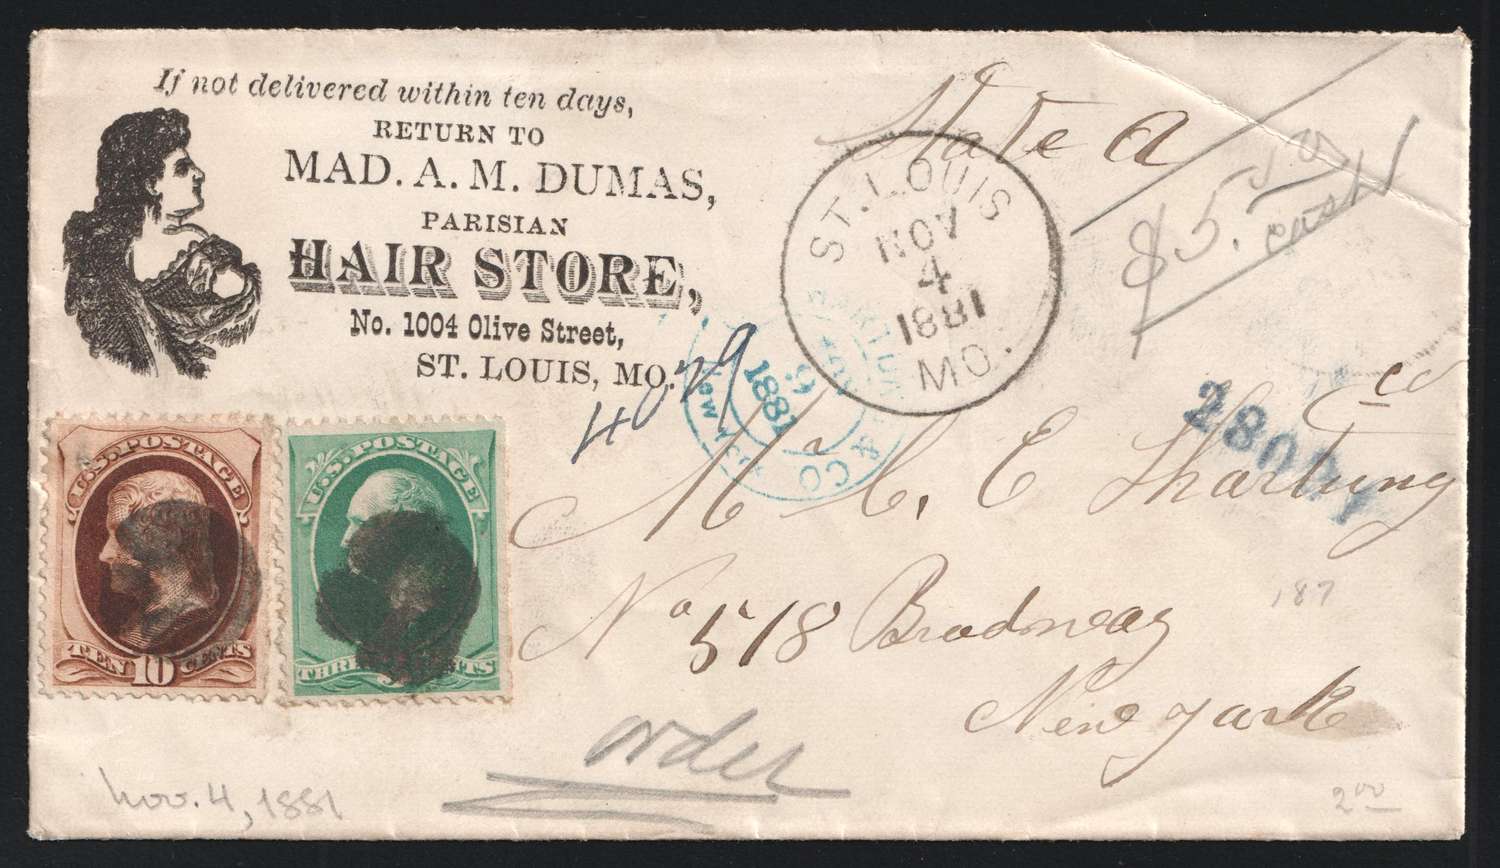 If not delivered within ten days,
RETURN TO
MAD. A. M. DUMAS,
PARISIAN
HAIR STORE,
No. 1004 Olive Street,
ST. LOUIS, MO.
State A
$5.00 cash
ST. LOUIS
NOV
4
1881
MO.
4029
9
1881
& CO
28021
Mr C. E. Shartung
No 518 Broadway
New York
187
U.S. POSTAGE
TEN 10 CENTS
U.S. POSTAGE
THREE CENTS
order
Nov. 4, 1881
2 00